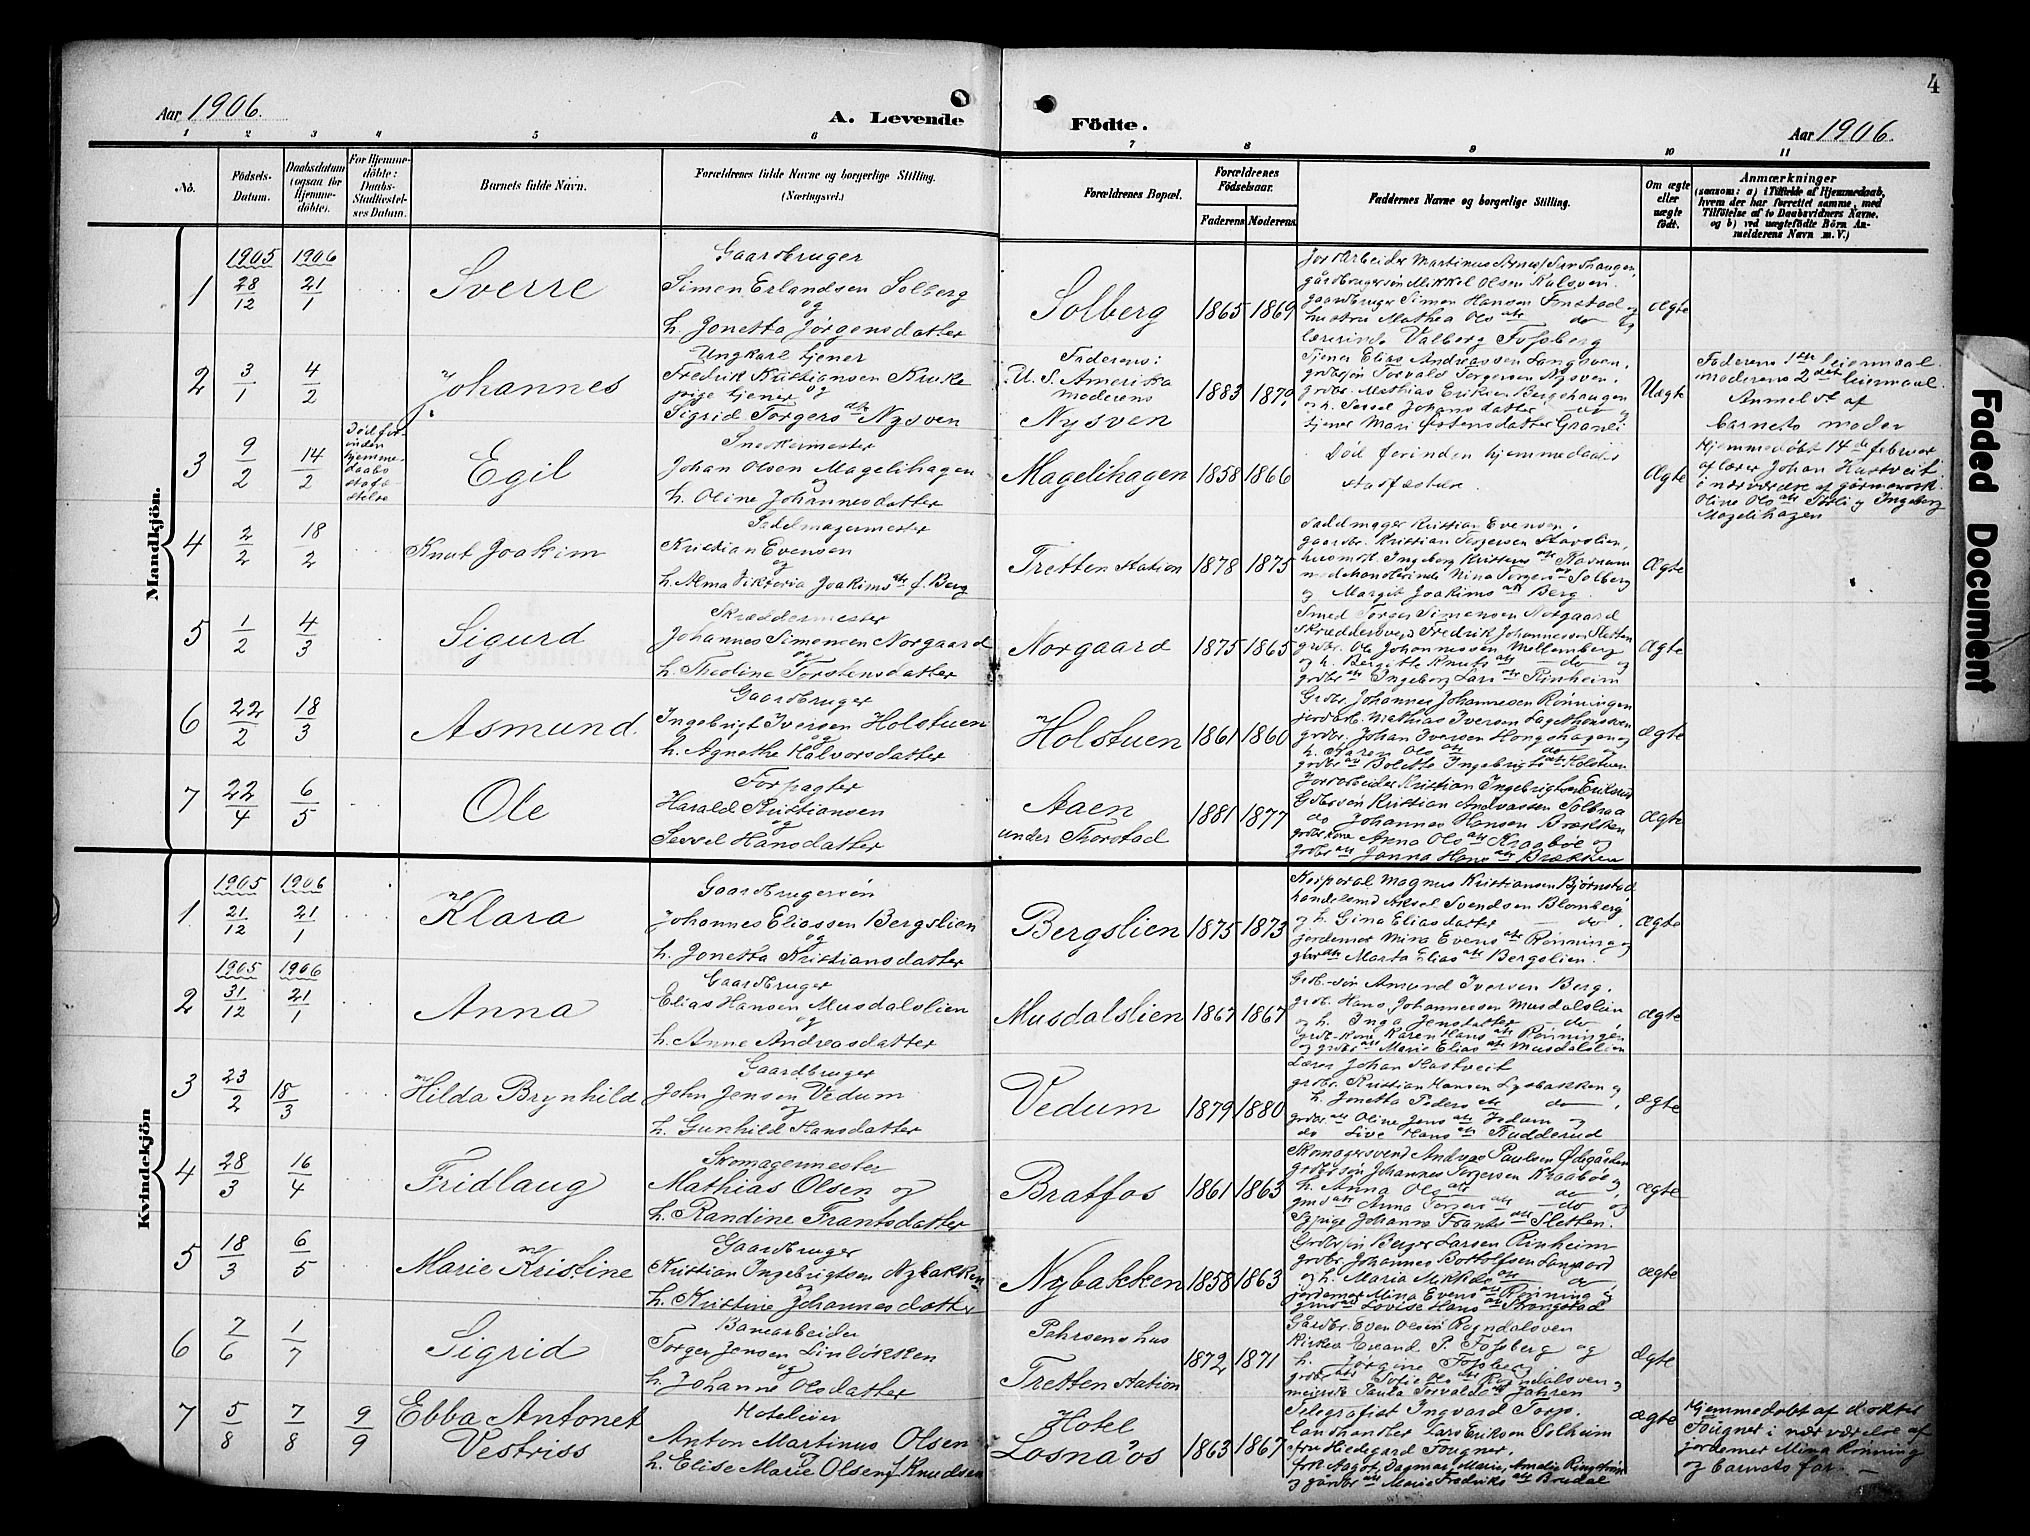 4
Aar 1906.
A. Levende
Födte.
Aar 1906.
1 2 3 4 5 6 7 8 9 10 11
No.
Födsels-Datum.
Daabsdatum (ogsaa for Hjemmedöbte).
For Hjemmedöbte: Daabs-Stadfæstelses Datum.
Barnets fulde Navn.
Forældrenes fulde Navne og borgerlige Stilling.
(Næringsvei.)
Forældrenes Bopæl.
Forældrenes Födselsaar.
Faderens Moderens.
Faddernes Navne og borgerlige Stilling.
Om ægte eller uægte födt.
Anmærkninger
(saasom: a) i Tilfælde af Hjemmedaab,
hvem der har forrettet samme, med
Tilföielse af to Daabsvidners Navne.
og b) ved uægtefödte Börn An-
melderens Navn m. V.)
Mandkjön.
1905 1906
1 28/12 21/1 Sverre
Gaardbruger
Simen Erlandsen Solberg
og
h. Jonetta Jørgensdatter
Solberg 1865 1869
gårdbrugersøn Mikkel Olsen Kulsven.
gaardbruger Simen Hansen
hustru Mathea Ols dtr do og
lærerinde Valberg Fossberg
ægte
2 3/1 4/2 Johannes
Ungkarl tjener
Fredrik Kristiansen Kruke
pige tjener og
Sigrid Torgersdtr Nysven
Faderens:
U. S. Amerika
moderens
Nysven 1883 1879
Tjener Elias Andreassen Langsven,
grdbrsøn Torvald Torgersen Nysven,
grdbr. Mathias Eriksen Bergehaugen
og h. Sessel Johansdatter do og
tjener Mari Østensdatter Granli
Uægte
Faderens 1ste leiermaal
moderens 2det leiermaal.
Anmeldt af
barnets moder
3 9/2 14/2
Død forinden hjemmedaabs stadfæstelse
Egil
Snekkermester
Johan Olsen Magelihagen
og
h. Oline Johannesdatter
Magelihagen 1858 1866
Død forinden hjemmedaabs
stadfæstelse.
Ægte
Hjemmedøbt 14de februar
af lærer Johan Hastveit
i nærværelse af gårmensk.
Oline Olsdtr og Ingeborg
Magelihagen
4 2/2 18/2 Knut Joakim
Sadelmagermester
Kristian Evensen
og
h. Alma Viktoria Joakimsdtr f. Berg
Tretten Station 1878 1875
Sadelmager Kristian Evensen.
gaardbr. Kristian Torgersen Skarslien,
modehandlerinde Mina Torgersdtr Solberg
og Margit Joakimsdtr Berg.
Ægte
5 1/2 4/3 Sigurd
Skræddermester
Johannes Simensen Norgaard
og
h. Thedine Torstensdatter
Norgaard 1875 1865
Smed Torger Simensen Norgaard
Skræddersvend Fredrik Johannessen Sletten
grdbr. Ole Johannessen Mellemberg
og h. Bergitte Knutsdtr do og
grdbrdtr Ingeborg Larsdtr Rinheim
Ægte
6 22/2 18/3 Asmund.
Gaardbruger
Ingebrigt Iversen Holstuen
og
h. Agnethe Halvorsdatter
Holstuen 1861 1860
Grdbr. Johannes Johannesen Rønningen
jordarb. Mathias Iversen
grdbr. Johan Iversen Haugshagen og
h. Karen Olsdtr do og
grdbrdtr Bolette Ingebrigtsdtr Holstuen
ægte
7 22/4 6/5 Ole
Forpagter
Harald Kristiansen
og
Sessel Hansdatter
Aaen
under Skorstad 1881 1877
Jordarbeider Kristian Ingebrigtsen
Grdbrsøn Kristian Andreassen Solbraa
do Johannes Hansen Brækken
grdbr.kone Anna Olsdtr Kraabøe og
grdbrdtr Janna Hansdtr Brækken
ægte
Kvindekjön
1905 1906
1 21/12 21/1 Klara
Gaardbrugersøn
Johannes Eliassen Bergslien
og
h. Jonetta Kristiansdatter
Bergslien 1875 1873
Korporal Magnus Kristiansen Bjørnstad,
handelsmd Aksel Svendsen Blomberg
og h. Gina Eliasdatter do.
jordemor Mina Evensdtr Rønning og
Marta Eliasdtr Bergslien.
ægte
1905 1906
2 31/12 21/1 Anna
Gaardbruger
Elias Hansen Musdalslien
og
h. Anne Andreasdatter
Musdalslien 1867 1867
Grdb.-søn Amund Iversen Berg.
grdb. Hans Johannessen Musdalslien
og h. Inga Jensdatter do,
grdb-kone Karen Hansdtr Rønningen
og grdbrdtr Marie Eliasdtr Musdalslien
ægte
3 23/2 18/3 Hilda Brynhild
Gaardbruger
John Jensen Vedum
og
h. Gunhild Hansdatter
Vedum 1879 1880
Lærer Johan Hastveit
grdbr. Kristian Hansen Lysbakken og
h. Jonetta Pedersdtr do,
grdbr.dtr Oline Jensdtr Jodum og
do Live Hansdtr Rudderud
ægte
4 28/3 16/4 Fridlaug
Skomagermester
Mathias Olsen og
h. Randine Frantsdatter
Bratfos 1861 1863
Skomagersvend Andreas Paulsen Ødegården
grdbrsøn Johannes Torgersen Kraabøe,
h. Anna Olsdtr do
Anna Torgersdtr do og
Sypige Johanna Frantsdtr Sletten.
ægte
5 18/3 6/5 Marie Kristine
Gaardbruger
Kristian Ingebrigtsen Nybakken
og
h. Kristine Johannesdatter
Nybakken 1858 1863
Grdbrsøn Berger Larsen Rinheim
grdbr. Johannes Bottolfsen
og h. Maria Mikkelsdtr do
jordemor Mina Evensdtr Rønning og
Lovise Hansdtr
ægte
6 7/6 1/7 Sigrid
Banearbeider
Torger Jensen Linløkken
og
h. Johanne Olsdatter
Pahrsenshus
Tretten Station 1872 1871
Gårdbr. Even Olsen Rogndalsven
Kirkes. Evand P. Fossberg og
h. Jørgine Fossberg
grdbrdtr Sofie Olsdtr Rogndalsven og
meierske Paula Torvaldsdtr Jahren
Ægte
7 5/8 7/8 9/9 Ebba Antonet
Vestriss
Hoteleier
Anton Martinus Olsen
og
h. Elise Marie Olsen f. Knudsen
Hotel
Losnaos 1863 1867
Telegrafist Ingvard Torp.
Landhandler Lars Eriksen Solheim
fru Hedegard Fougner,
frk Aagot, Dagmar, Marie, Amalie
og gårdbrdtr Marie Fredriksdtr Brudal
ægte
Hjemmedøbt af doktor
Fougner i nærværelse af
jordemor Mina Rønning
og barnets far.
Faded Document